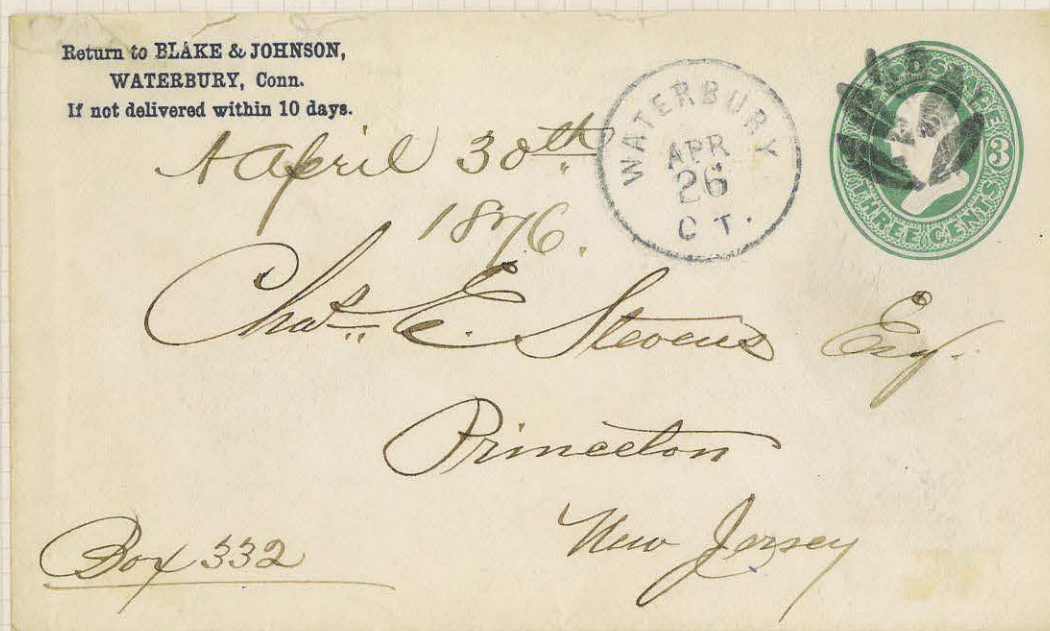 Return to BLAKE & JOHNSON,
WATERBURY, Conn.
If not delivered within 10 days.
WATERBURY
APR
26
CT.
U.S. POSTAGE
3
THREE CENTS
A April 30th
1876.
Chas. E. Stevens Esq.
Princeton
New Jersey
Box 332